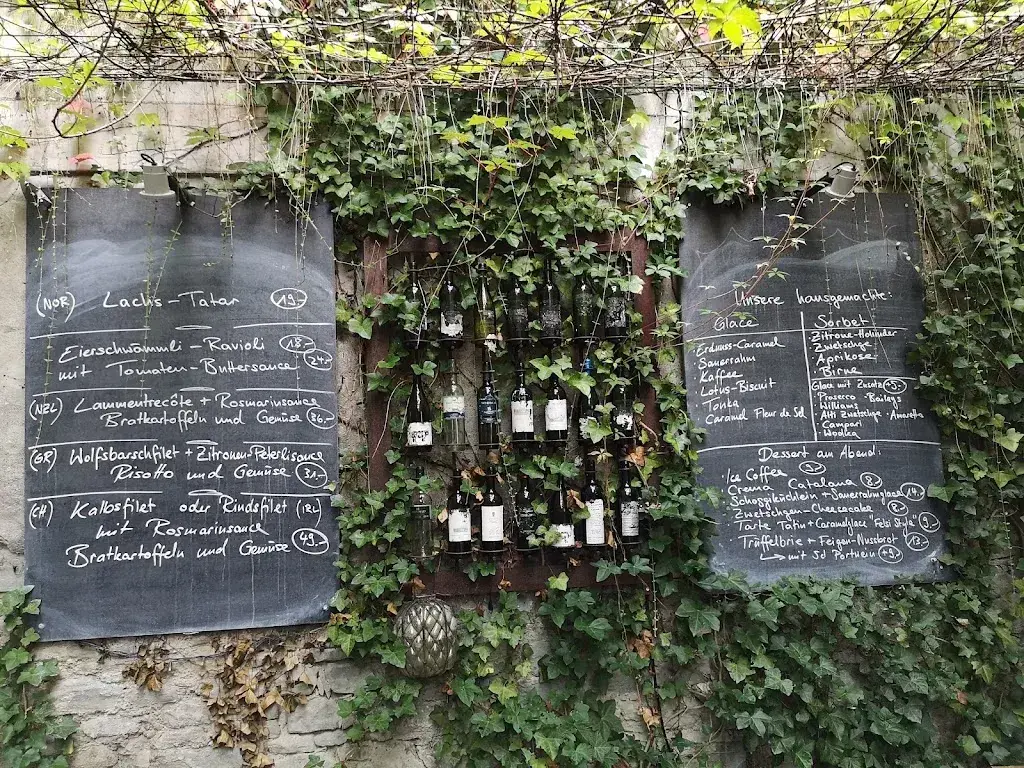 (NOR) Lachs-Tatar 19.-
Eierschwämmli-Ravioli 18.-
mit Tomaten-Buttersauce 24.-
(NZL) Lammentrecôte + Rosmarinsauce
Bratkartoffeln und Gemüse 36.-
(GR) Wolfsbarschfilet + Zitronen-Petersauce
Risotto und Gemüse 31.-
(CH) Kalbsfilet oder Rindsfilet (IRL)
mit Rosmarinsauce
Bratkartoffeln und Gemüse 49.-
Unsere hausgemachte:
Glace
· Erdnuss-Caramel
· Sauerrahm
· Kaffee
· Lotus-Biscuit
· Tonka
· Caramel Fleur de Sel
Sorbet
· Zitrone-Holunder
· Zwetschge
· Aprikose
· Birne
Glace mit Zusatz +5.-
· Prosecco · Baileys
· Williams
· Alti Zwetschge · Amaretto
· Campari
· Wodka
Dessert am Abend:
Ice Coffee
Crema Catalana 8.-
Schoggiküchlein + Sauerrahmglace 14.-
Zwetschgen-Cheesecake 8.-
Tarte Tatin + Caramelglace "Felsi Style" 9.-
Trüffelbrie + Feigen-Nussbrot 13.-
mit 5cl Portwein +9.-